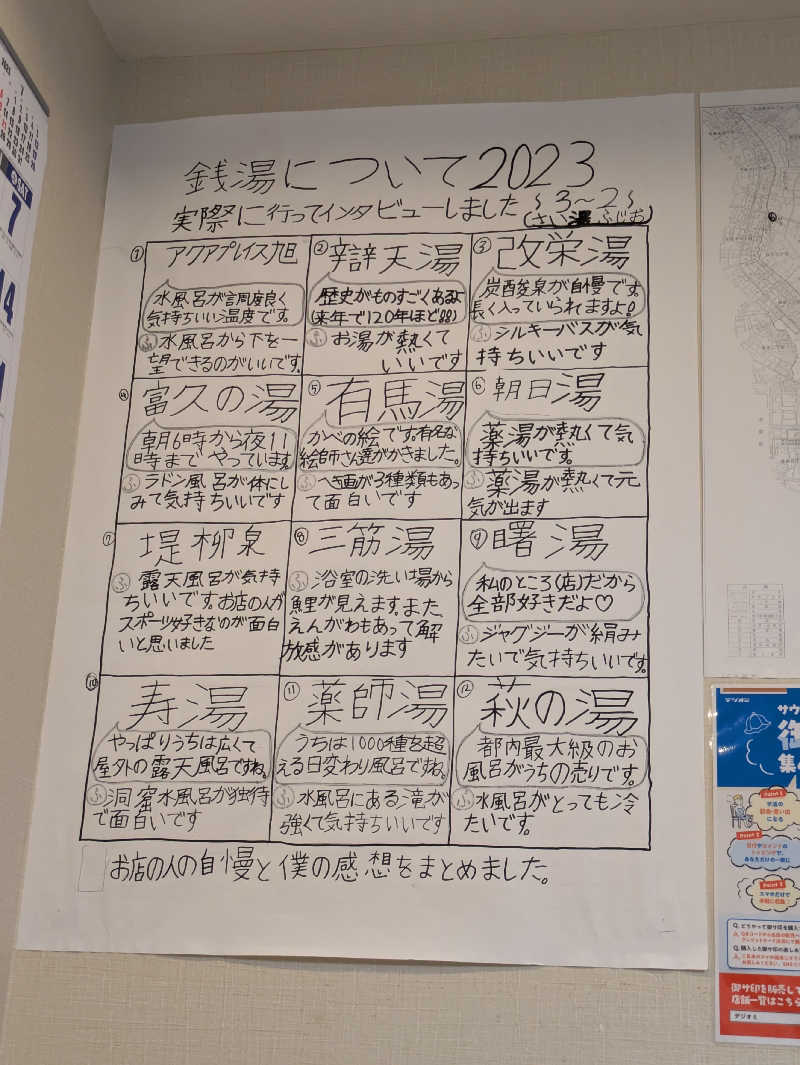 銭湯について2023
実際に行ってインタビューしました
~3~2~
さい湯ふじお
① アクアプレイス旭
水風呂が言周度良く
気持ちいい温度です
ふ 水風呂から下を一
望できるのがいいです。
② 辯天湯
歴史がものすごくあるよ
(来年で120年ほど!!)
ふ お湯が熱くて
いいです
③ 改栄湯
炭酸泉が自慢です。
長く入っていられますよ!
ふ シルキーバスが気
持ちいいです
④ 富久の湯
朝6時から夜11
時までやっています。
ふ ラドン風呂が体にし
みて気持ちいいです
⑤ 有馬湯
かべの絵です。有名な
絵師さん達がかきました。
ふ へき画が3種類もあっ
て面白いです
⑥ 朝日湯
薬湯が熱くて気
持ちいいです。
ふ 薬湯が熱くて元
気が出ます
⑦ 堤柳泉
ふ 露天風呂が気持
ちいいです。お店の人が
スポーツ好きなのが面白
いと思いました
⑧ 三筋湯
ふ 浴室の洗い場から
鯉が見えます。また、
えんがわもあって解
放感があります
⑨ 曙湯
私のところ(店)だから
全部好きだよ♡
ふ ジャグジーが絹み
たいで気持ちいいです。
⑩ 寿湯
やっぱりうちは広くて
屋外の露天風呂ですね。
ふ 洞窟水風呂が独特
で面白いです
⑪ 薬師湯
うちは1000種を超
える日変わり風呂ですね。
ふ 水風呂にある滝が
強くて気持ちいいです
⑫ 萩の湯
都内最大級のお
風呂がうちの売りです。
ふ 水風呂がとっても冷
たいです。
お店の人の自慢と僕の感想をまとめました。
2023
7
SAT
7
14
デジオミ
サウ
御
集め
Point 1
Point 2
Point 3
Q. どうやって御サ印を購入
Q. 購入した御サ印の楽しみ
御サ印を販売して
店舗一覧はこちら
デジオミ